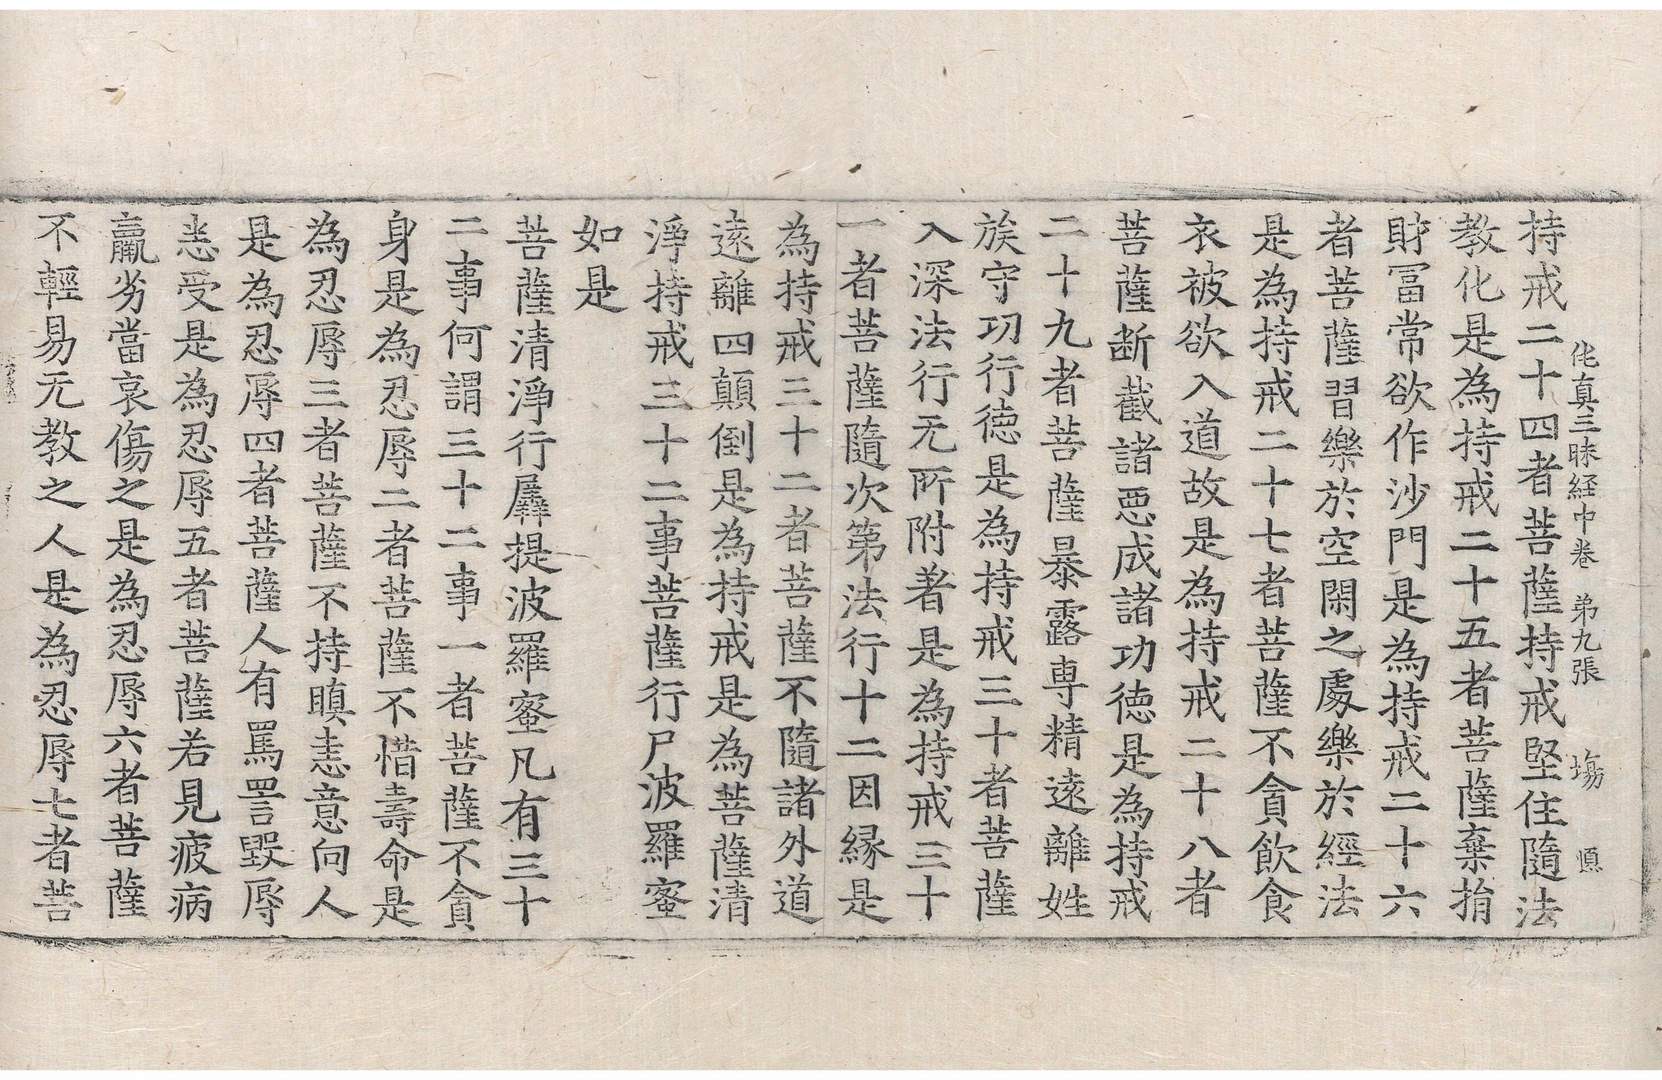 伅真三昧経中巻 苐九張 塲 㥧
持戒二十四者菩薩持戒堅住隨法
教化是為持戒二十五者菩薩棄捐
財冨常欲作沙門是為持戒二十六
者菩薩習樂於空閑之處樂於經法
是為持戒二十七者菩薩不貪飲食
衣被欲入道故是為持戒二十八者
菩薩断截諸惡成諸功德是為持戒
二十九者菩薩暴露専精遠離姓
族守功行德是為持戒三十者菩薩
入深法行无所附著是為持戒三十
一者菩薩隨次第法行十二因縁是
為持戒三十二者菩薩不隨諸外道
遠離四顛倒是為持戒是為菩薩清
淨持戒三十二事菩薩行尸波羅蜜
如是
菩薩清淨行羼提波羅蜜凡有三十
二事何謂三十二事一者菩薩不貪
身是為忍辱二者菩薩不惜壽命是
為忍辱三者菩薩不持瞋恚意向人
是為忍辱四者菩薩人有罵詈毀辱
悉受是為忍辱五者菩薩若見疲病
羸劣當哀傷之是為忍辱六者菩薩
不輕易无教之人是為忍辱七者菩